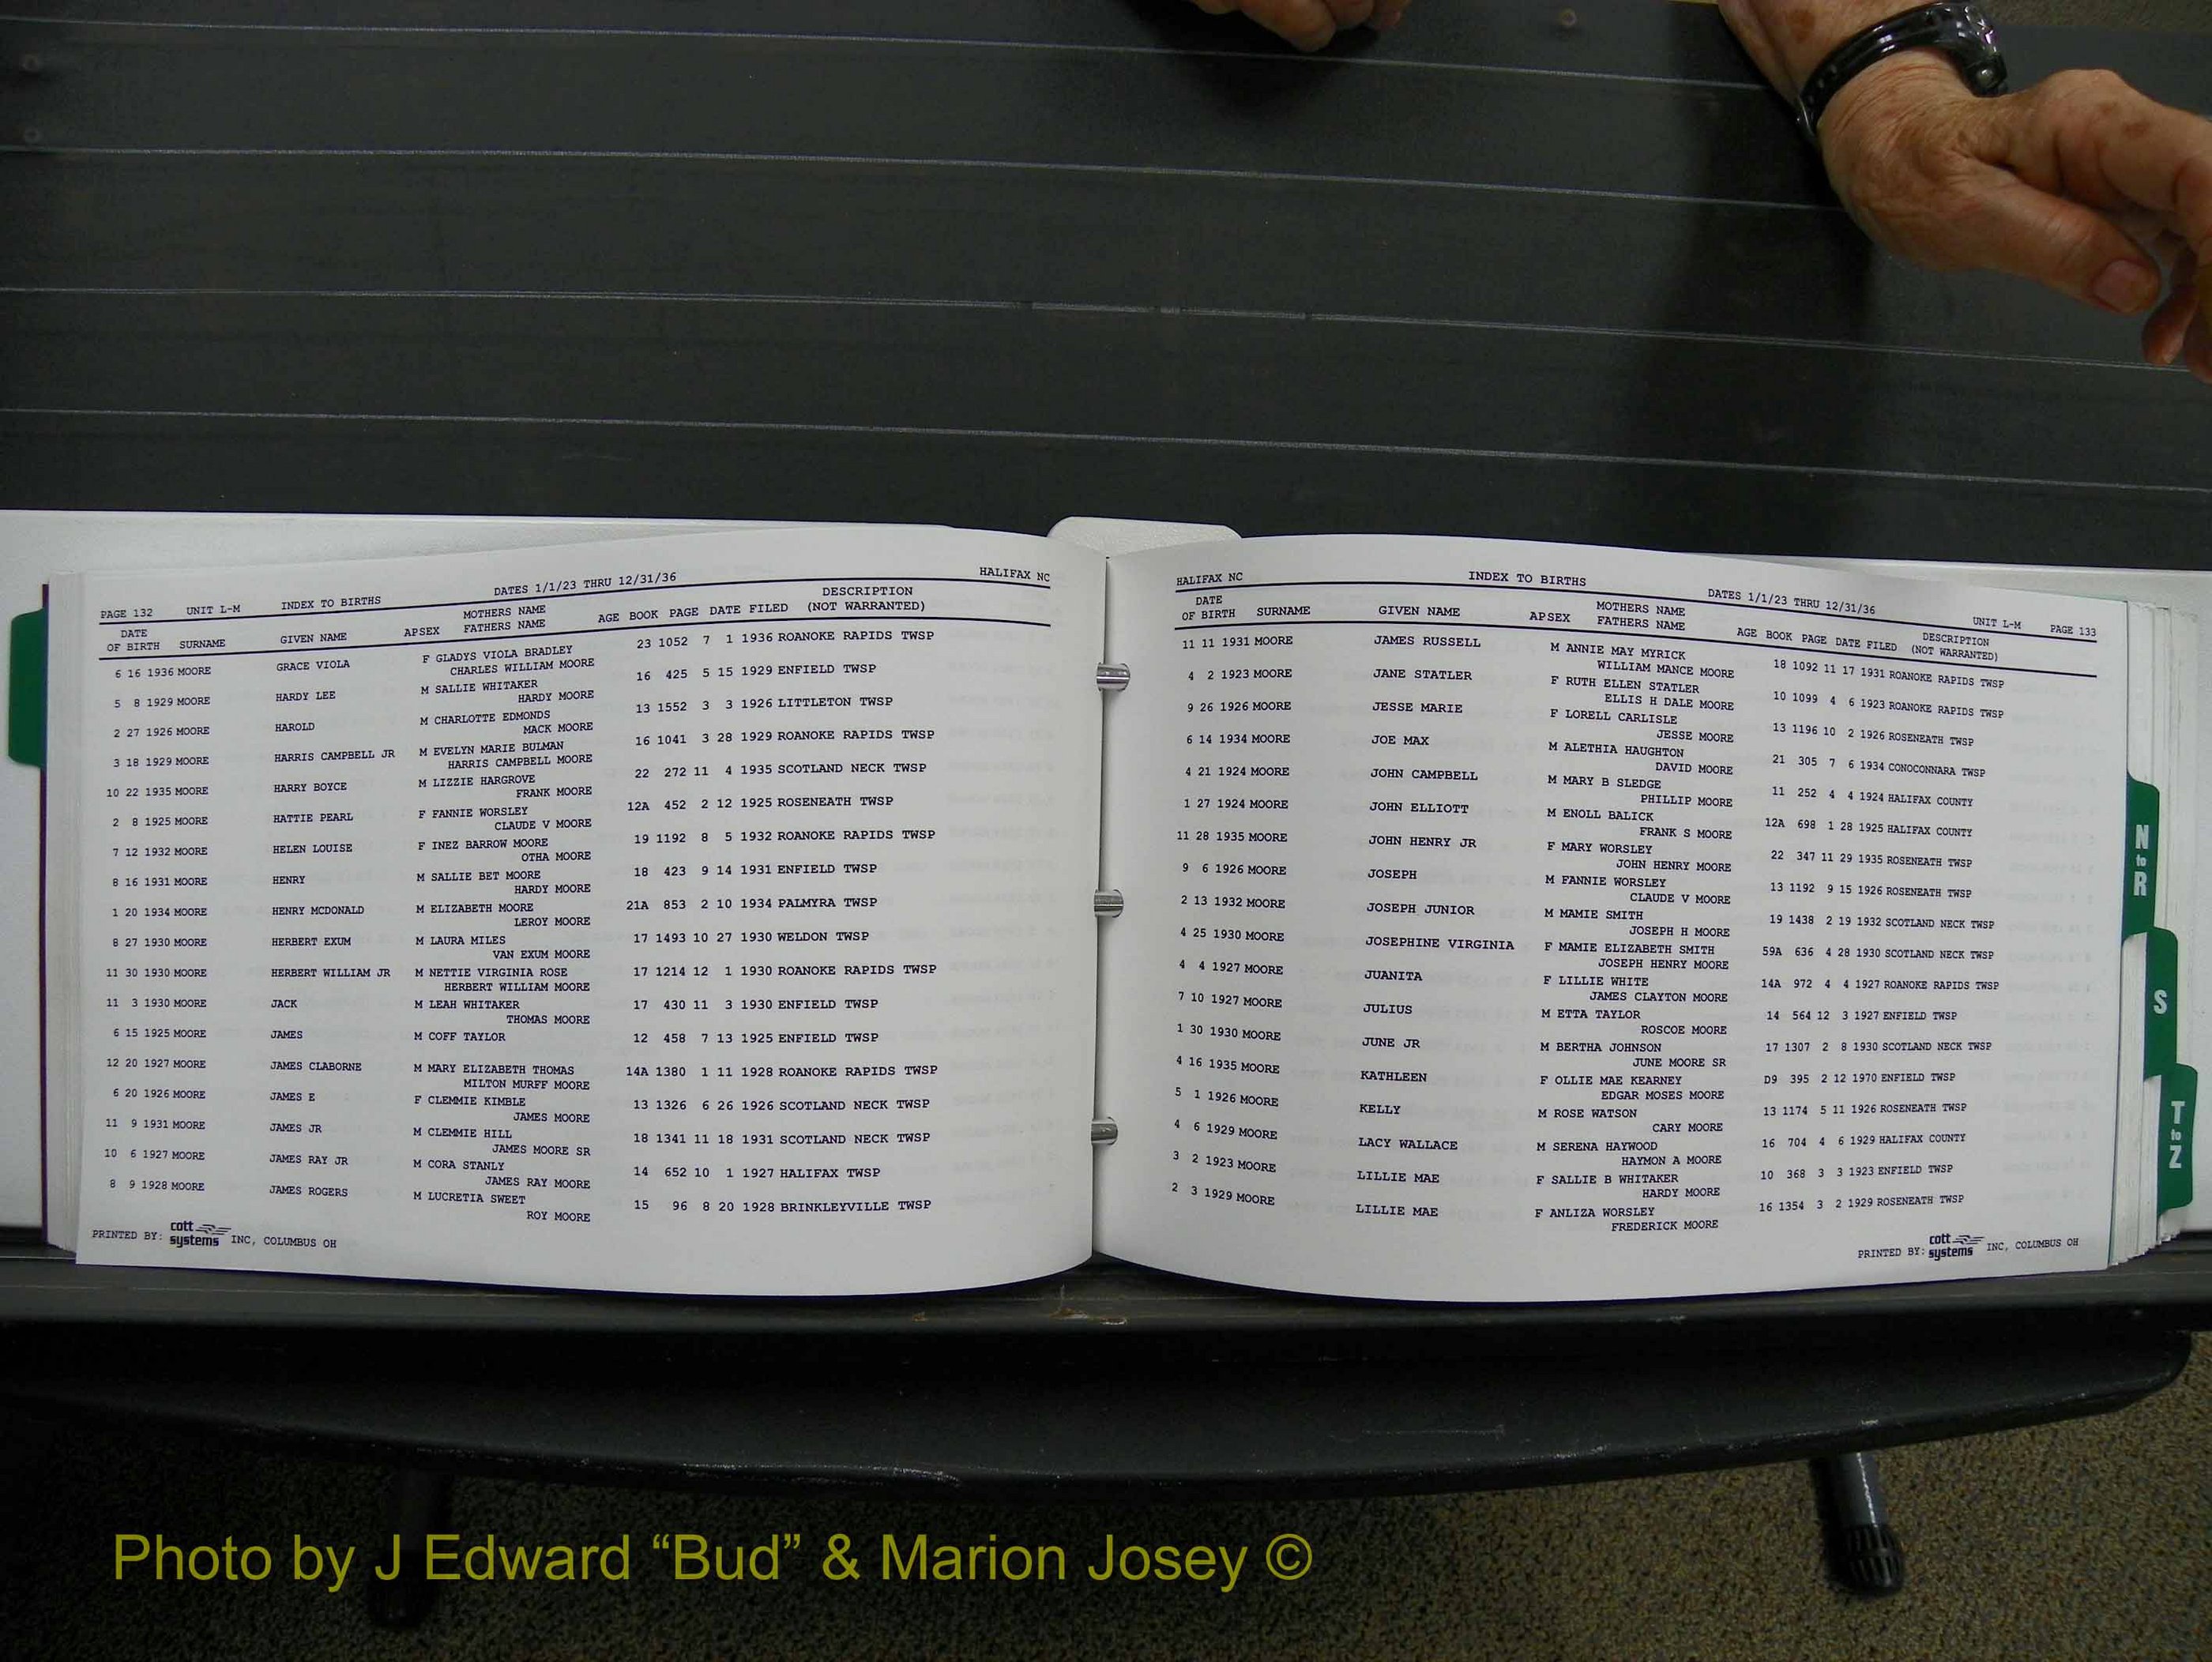 PAGE 132 UNIT L-M INDEX TO BIRTHS DATES 1/1/23 THRU 12/31/36 HALIFAX NC
DATE OF BIRTH SURNAME GIVEN NAME APSEX MOTHERS NAME FATHERS NAME AGE BOOK PAGE DATE FILED DESCRIPTION (NOT WARRANTED)
6 16 1936 MOORE GRACE VIOLA F GLADYS VIOLA BRADLEY 23 1052 7 1 1936 ROANOKE RAPIDS TWSP
CHARLES WILLIAM MOORE
5 8 1929 MOORE HARDY LEE M SALLIE WHITAKER 16 425 5 15 1929 ENFIELD TWSP
HARDY MOORE
2 27 1926 MOORE HAROLD M CHARLOTTE EDMONDS 13 1552 3 3 1926 LITTLETON TWSP
MACK MOORE
3 18 1929 MOORE HARRIS CAMPBELL JR M EVELYN MARIE BULMAN 16 1041 3 28 1929 ROANOKE RAPIDS TWSP
HARRIS CAMPBELL MOORE
10 22 1935 MOORE HARRY BOYCE M LIZZIE HARGROVE 22 272 11 4 1935 SCOTLAND NECK TWSP
FRANK MOORE
2 8 1925 MOORE HATTIE PEARL F FANNIE WORSLEY 12A 452 2 12 1925 ROSENEATH TWSP
CLAUDE V MOORE
7 12 1932 MOORE HELEN LOUISE F INEZ BARROW MOORE 19 1192 8 5 1932 ROANOKE RAPIDS TWSP
OTHA MOORE
8 16 1931 MOORE HENRY M SALLIE BET MOORE 18 423 9 14 1931 ENFIELD TWSP
HARDY MOORE
1 20 1934 MOORE HENRY MCDONALD M ELIZABETH MOORE 21A 853 2 10 1934 PALMYRA TWSP
LEROY MOORE
8 27 1930 MOORE HERBERT EXUM M LAURA MILES 17 1493 10 27 1930 WELDON TWSP
VAN EXUM MOORE
11 30 1930 MOORE HERBERT WILLIAM JR M NETTIE VIRGINIA ROSE 17 1214 12 1 1930 ROANOKE RAPIDS TWSP
HERBERT WILLIAM MOORE
11 3 1930 MOORE JACK M LEAH WHITAKER 17 430 11 3 1930 ENFIELD TWSP
THOMAS MOORE
6 15 1925 MOORE JAMES M COFF TAYLOR 12 458 7 13 1925 ENFIELD TWSP
12 20 1927 MOORE JAMES CLABORNE M MARY ELIZABETH THOMAS 14A 1380 1 11 1928 ROANOKE RAPIDS TWSP
MILTON MURFF MOORE
6 20 1926 MOORE JAMES E F CLEMMIE KIMBLE 13 1326 6 26 1926 SCOTLAND NECK TWSP
JAMES MOORE
11 9 1931 MOORE JAMES JR M CLEMMIE HILL 18 1341 11 18 1931 SCOTLAND NECK TWSP
JAMES MOORE SR
10 6 1927 MOORE JAMES RAY JR M CORA STANLY 14 652 10 1 1927 HALIFAX TWSP
JAMES RAY MOORE
8 9 1928 MOORE JAMES ROGERS M LUCRETIA SWEET 15 96 8 20 1928 BRINKLEYVILLE TWSP
ROY MOORE
PRINTED BY: cott systems INC, COLUMBUS OH
HALIFAX NC INDEX TO BIRTHS DATES 1/1/23 THRU 12/31/36 UNIT L-M PAGE 133
DATE OF BIRTH SURNAME GIVEN NAME APSEX MOTHERS NAME FATHERS NAME AGE BOOK PAGE DATE FILED DESCRIPTION (NOT WARRANTED)
11 11 1931 MOORE JAMES RUSSELL M ANNIE MAY MYRICK 18 1092 11 17 1931 ROANOKE RAPIDS TWSP
WILLIAM MANCE MOORE
4 2 1923 MOORE JANE STATLER F RUTH ELLEN STATLER 10 1099 4 6 1923 ROANOKE RAPIDS TWSP
ELLIS H DALE MOORE
9 26 1926 MOORE JESSE MARIE F LORELL CARLISLE 13 1196 10 2 1926 ROSENEATH TWSP
JESSE MOORE
6 14 1934 MOORE JOE MAX M ALETHIA HAUGHTON 21 305 7 6 1934 CONOCONNARA TWSP
DAVID MOORE
4 21 1924 MOORE JOHN CAMPBELL M MARY B SLEDGE 11 252 4 4 1924 HALIFAX COUNTY
PHILLIP MOORE
1 27 1924 MOORE JOHN ELLIOTT M ENOLL BALICK 12A 698 1 28 1925 HALIFAX COUNTY
FRANK S MOORE
11 28 1935 MOORE JOHN HENRY JR F MARY WORSLEY 22 347 11 29 1935 ROSENEATH TWSP
JOHN HENRY MOORE
9 6 1926 MOORE JOSEPH M FANNIE WORSLEY 13 1192 9 15 1926 ROSENEATH TWSP
CLAUDE V MOORE
2 13 1932 MOORE JOSEPH JUNIOR M MAMIE SMITH 19 1438 2 19 1932 SCOTLAND NECK TWSP
JOSEPH H MOORE
4 25 1930 MOORE JOSEPHINE VIRGINIA F MAMIE ELIZABETH SMITH 59A 636 4 28 1930 SCOTLAND NECK TWSP
JOSEPH HENRY MOORE
4 4 1927 MOORE JUANITA F LILLIE WHITE 14A 972 4 4 1927 ROANOKE RAPIDS TWSP
JAMES CLAYTON MOORE
7 10 1927 MOORE JULIUS M ETTA TAYLOR 14 564 12 3 1927 ENFIELD TWSP
ROSCOE MOORE
1 30 1930 MOORE JUNE JR M BERTHA JOHNSON 17 1307 2 8 1930 SCOTLAND NECK TWSP
JUNE MOORE SR
4 16 1935 MOORE KATHLEEN F OLLIE MAE KEARNEY D9 395 2 12 1970 ENFIELD TWSP
EDGAR MOSES MOORE
5 1 1926 MOORE KELLY M ROSE WATSON 13 1174 5 11 1926 ROSENEATH TWSP
CARY MOORE
4 6 1929 MOORE LACY WALLACE M SERENA HAYWOOD 16 704 4 6 1929 HALIFAX COUNTY
HAYMON A MOORE
3 2 1923 MOORE LILLIE MAE F SALLIE B WHITAKER 10 368 3 3 1923 ENFIELD TWSP
HARDY MOORE
2 3 1929 MOORE LILLIE MAE F ANLIZA WORSLEY 16 1354 3 2 1929 ROSENEATH TWSP
FREDERICK MOORE
PRINTED BY: cott systems INC, COLUMBUS OH
N to R
S
T to Z
Photo by J Edward “Bud” & Marion Josey ©